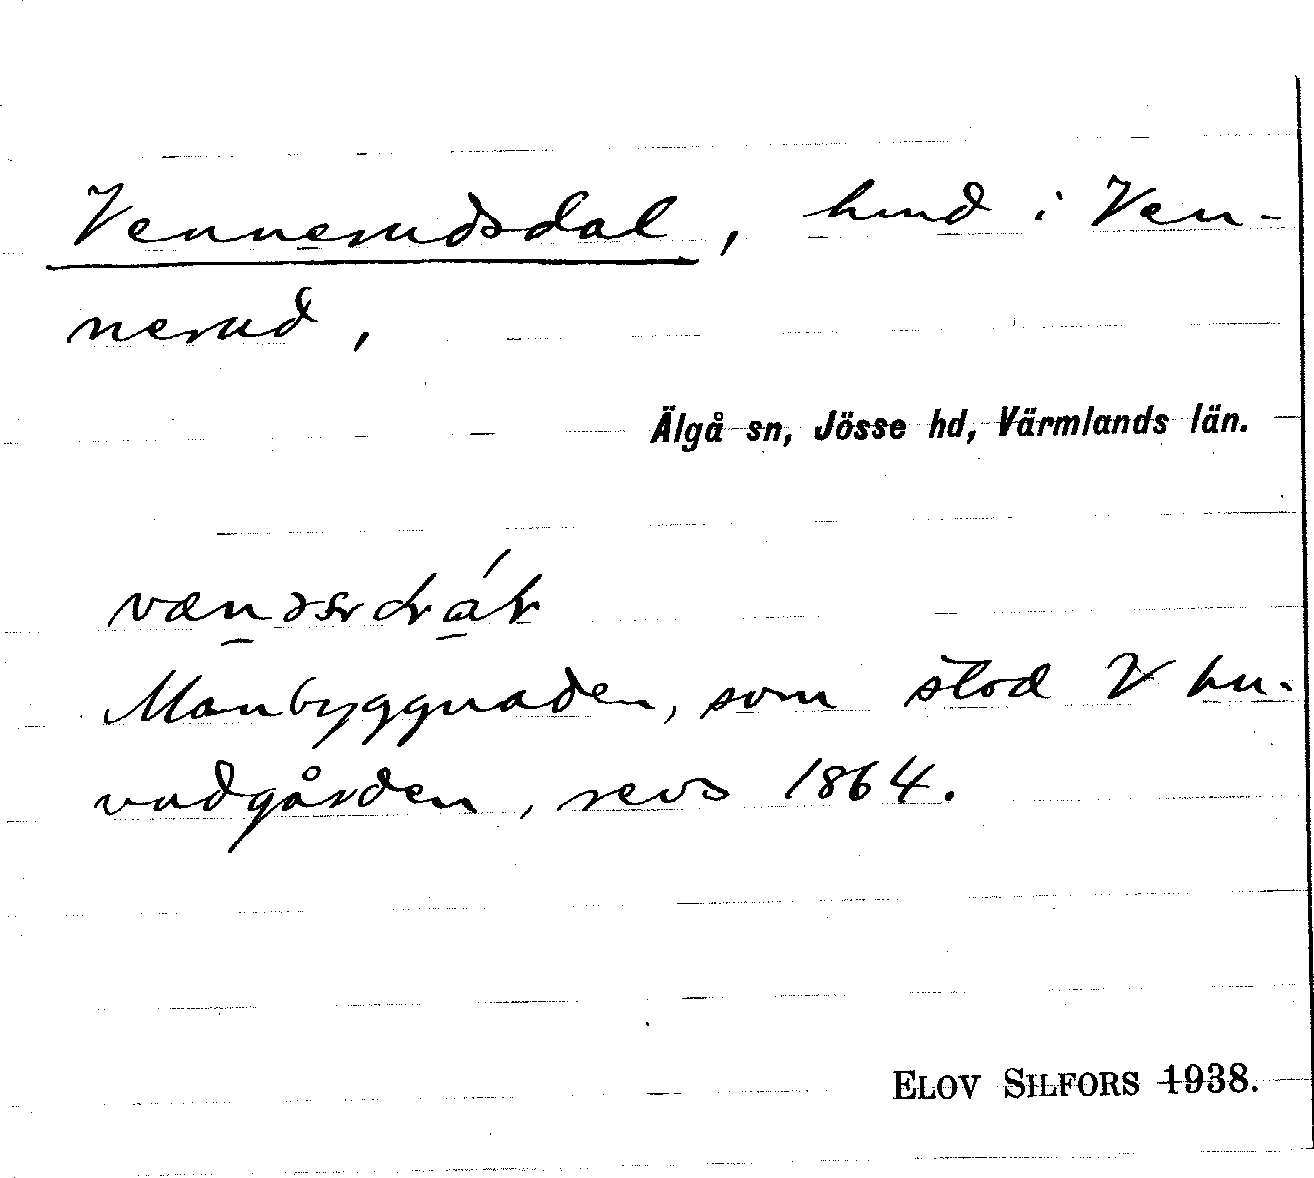 Vennerudsdal, hmd i Ven-
nerud,
Älgå sn, Jösse hd, Värmlands län.
Manbyggnaden, som stod V hu-
vudgården, revs 1864.
ELOV SILFORS 1938.